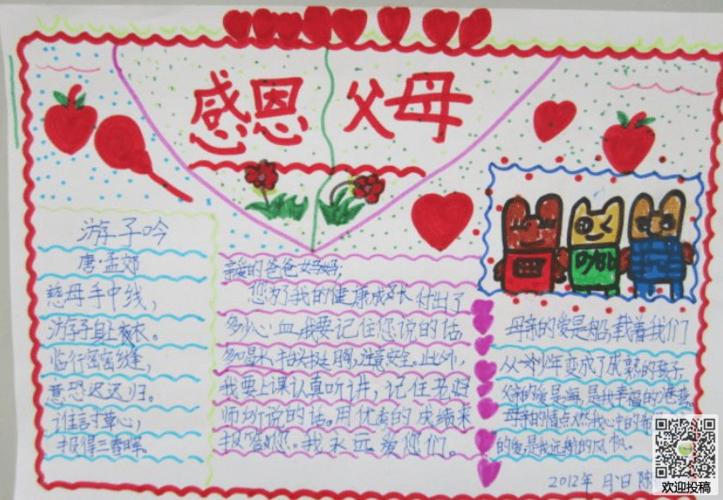 感恩 父母
游子吟
唐·孟郊
慈母手中线，
游子身上衣。
临行密密缝，
意恐迟迟归。
谁言寸草心，
报得三春晖。
亲爱的爸爸妈妈；
您为了我的健康成长付出了
多少心血我要记住您说的话
多喝水、抬头挺胸，注意安全。此外，
我要上课认真听讲，记住老师
师所说的话。用优秀的成绩来
报答您。我永远爱你们。
母亲的爱是船，载着我们
从少年变成了成熟的孩子，
父爱的爱是海，是我幸福的港
母亲的 点燃我心中的希
的爱，是我远航的风帆。
2012年 月 日 陈
欢迎投稿